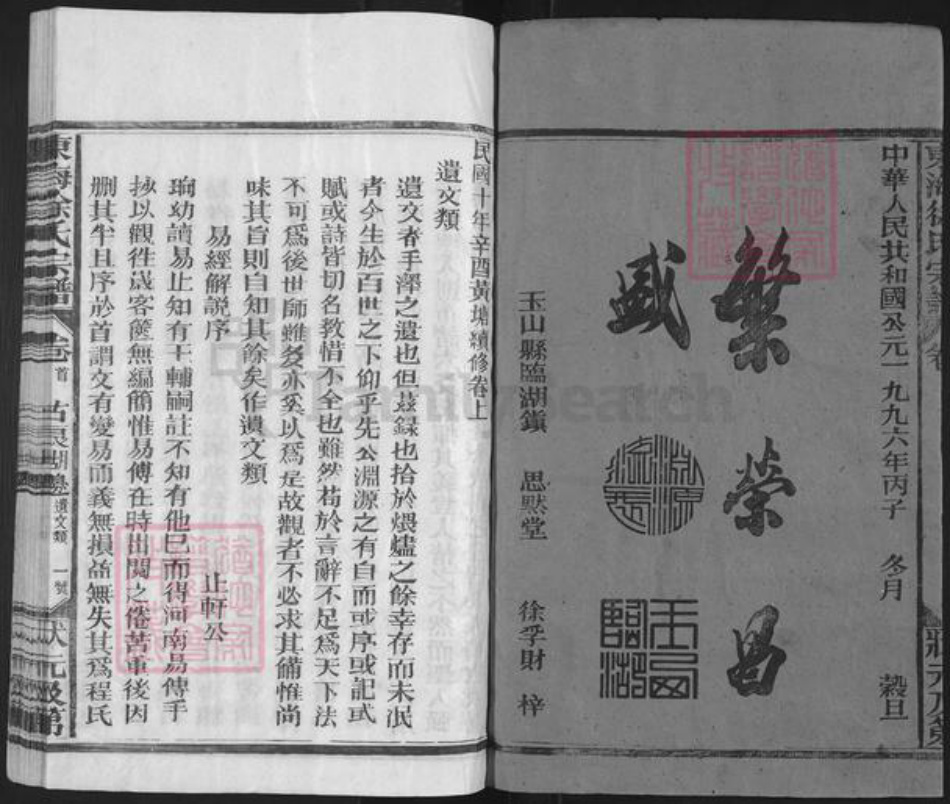 中華人民共和國公元一九九六年丙子 冬月 穀旦
繁榮昌
盛
淵源
流長
玉山
臨湖
玉山縣臨湖鎮 思默堂 徐孚財 梓
民國十年辛酉黃塘續修卷上
遺文類
遺文者手澤之遺也但茲錄也拾於煨燼之餘幸存而未泯
者今生於百世之下仰乎先公淵源之有自而或序或記或
賦或詩皆切名教惜不全也雖然苟於言辭不足為天下法
不可為後世師雖多亦奚以為是故觀者不必求其備惟尚
味其旨則自知其餘矣作遺文類
易經解說序 止軒公
珦幼讀易止知有王輔嗣註不知有他已而得河南易傳手
抄以觀徃歲客篋無編簡惟易傳在時出閱之倦苦重後因
刪其半且序於首謂文有變易而義無損益無失其為程氏
東海徐氏宗譜 卷首 古良湖邊 遺文類 一號 狀元及第
FamilySearch